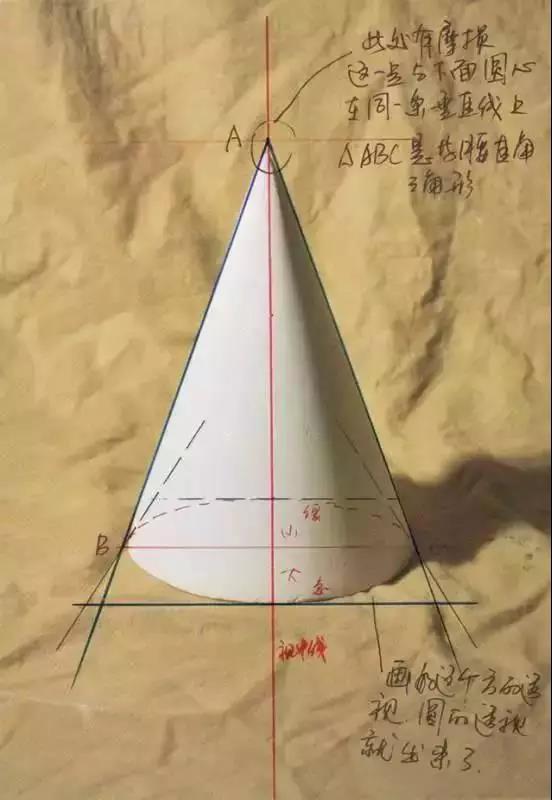 此处有摩损
这一点与下面圆心
在同一条垂直线上
A
△ABC是等腰直角
三角形
缓
小
B
大
急
视中线
画 这个方的透
视.圆的透视
就出来了